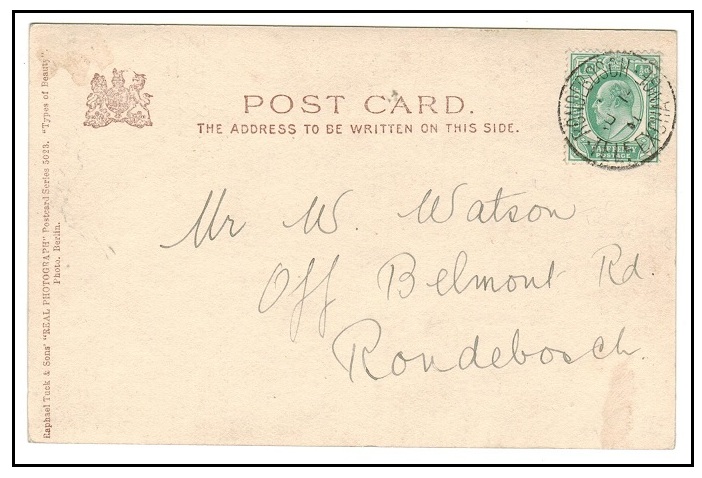 POST CARD.
THE ADDRESS TO BE WRITTEN ON THIS SIDE.
Mr W. Watson
Off Belmont Rd.
Rondebosch.
Raphael Tuck & Sons' "REAL PHOTOGRAPH" Postcard Series 5023. "Types of Beauty".
Photo. Berlin.
RONDEBOSCH
POSTAGE